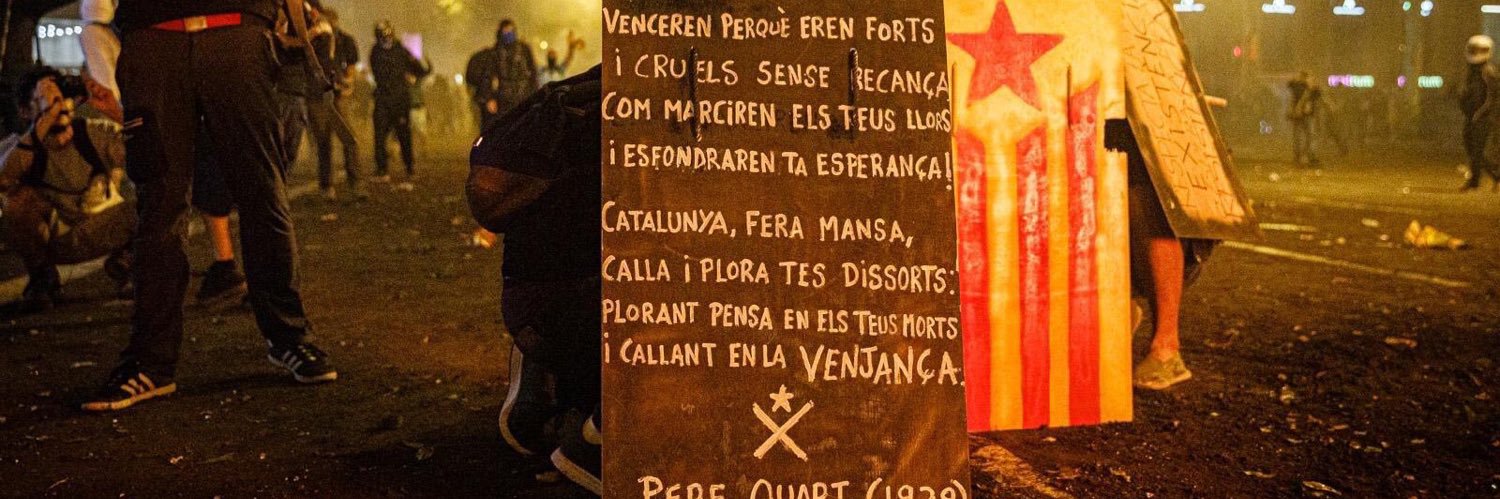 VENCEREN PERQUÈ EREN FORTS
i CRUELS SENSE RECANÇA
COM MARCIREN ELS TEUS LLORS
i ESFONDRAREN TA ESPERANÇA!
CATALUNYA, FERA MANSA,
CALLA i PLORA TES DISSORTS:
PLORANT PENSA EN ELS TEUS MORTS
i CALLANT EN LA VENJANÇA.
PERE QUART (1939)
EXISTENCE